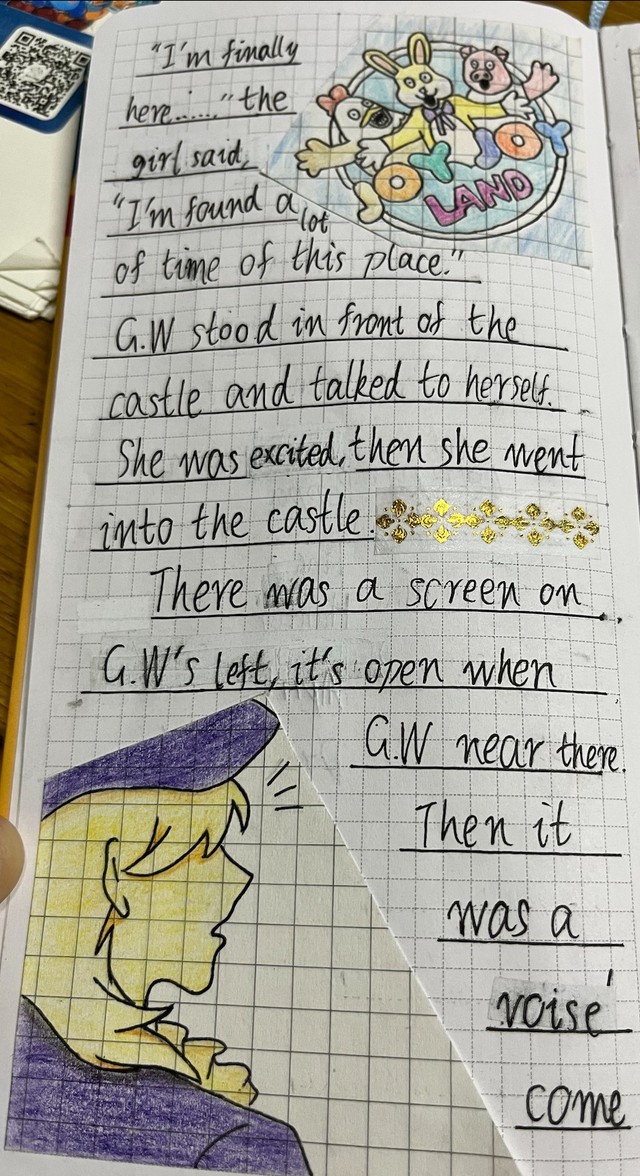 "I'm finally
here......" the
girl said,
"I'm found a lot
of time of this place."
G.W stood in front of the
castle and talked to herself.
She was excited, then she went
into the castle.
There was a screen on
G.W's left, it's open when
G.W near there.
Then it
was a
voise'
come
JOY JOY
LAND